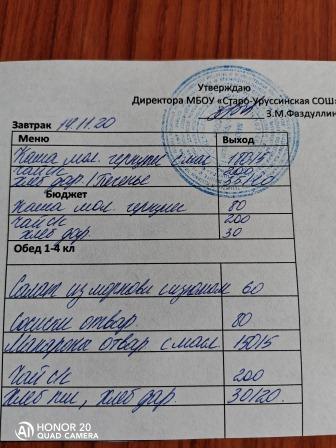 Утверждаю
Директора МБОУ «Старо-Уруссинская СОШ»
З.М.Фаздуллин
Завтрак 14.11.20
Меню Выход
Каша мол. геркул с мас 150/5
чай ск 200
хлеб дар/печенье
Бюджет
Каша мол. геркул 80
чай ск 200
хлеб дар. 30
Обед 1-4 кл
Салат из моркови с изюмом 60
Сосиски отвар 80
Макароны отвар с мас 150/5
Чай ск 200
Хлеб пш, хлеб дар. 30/20.
HONOR 20
QUAD CAMERA